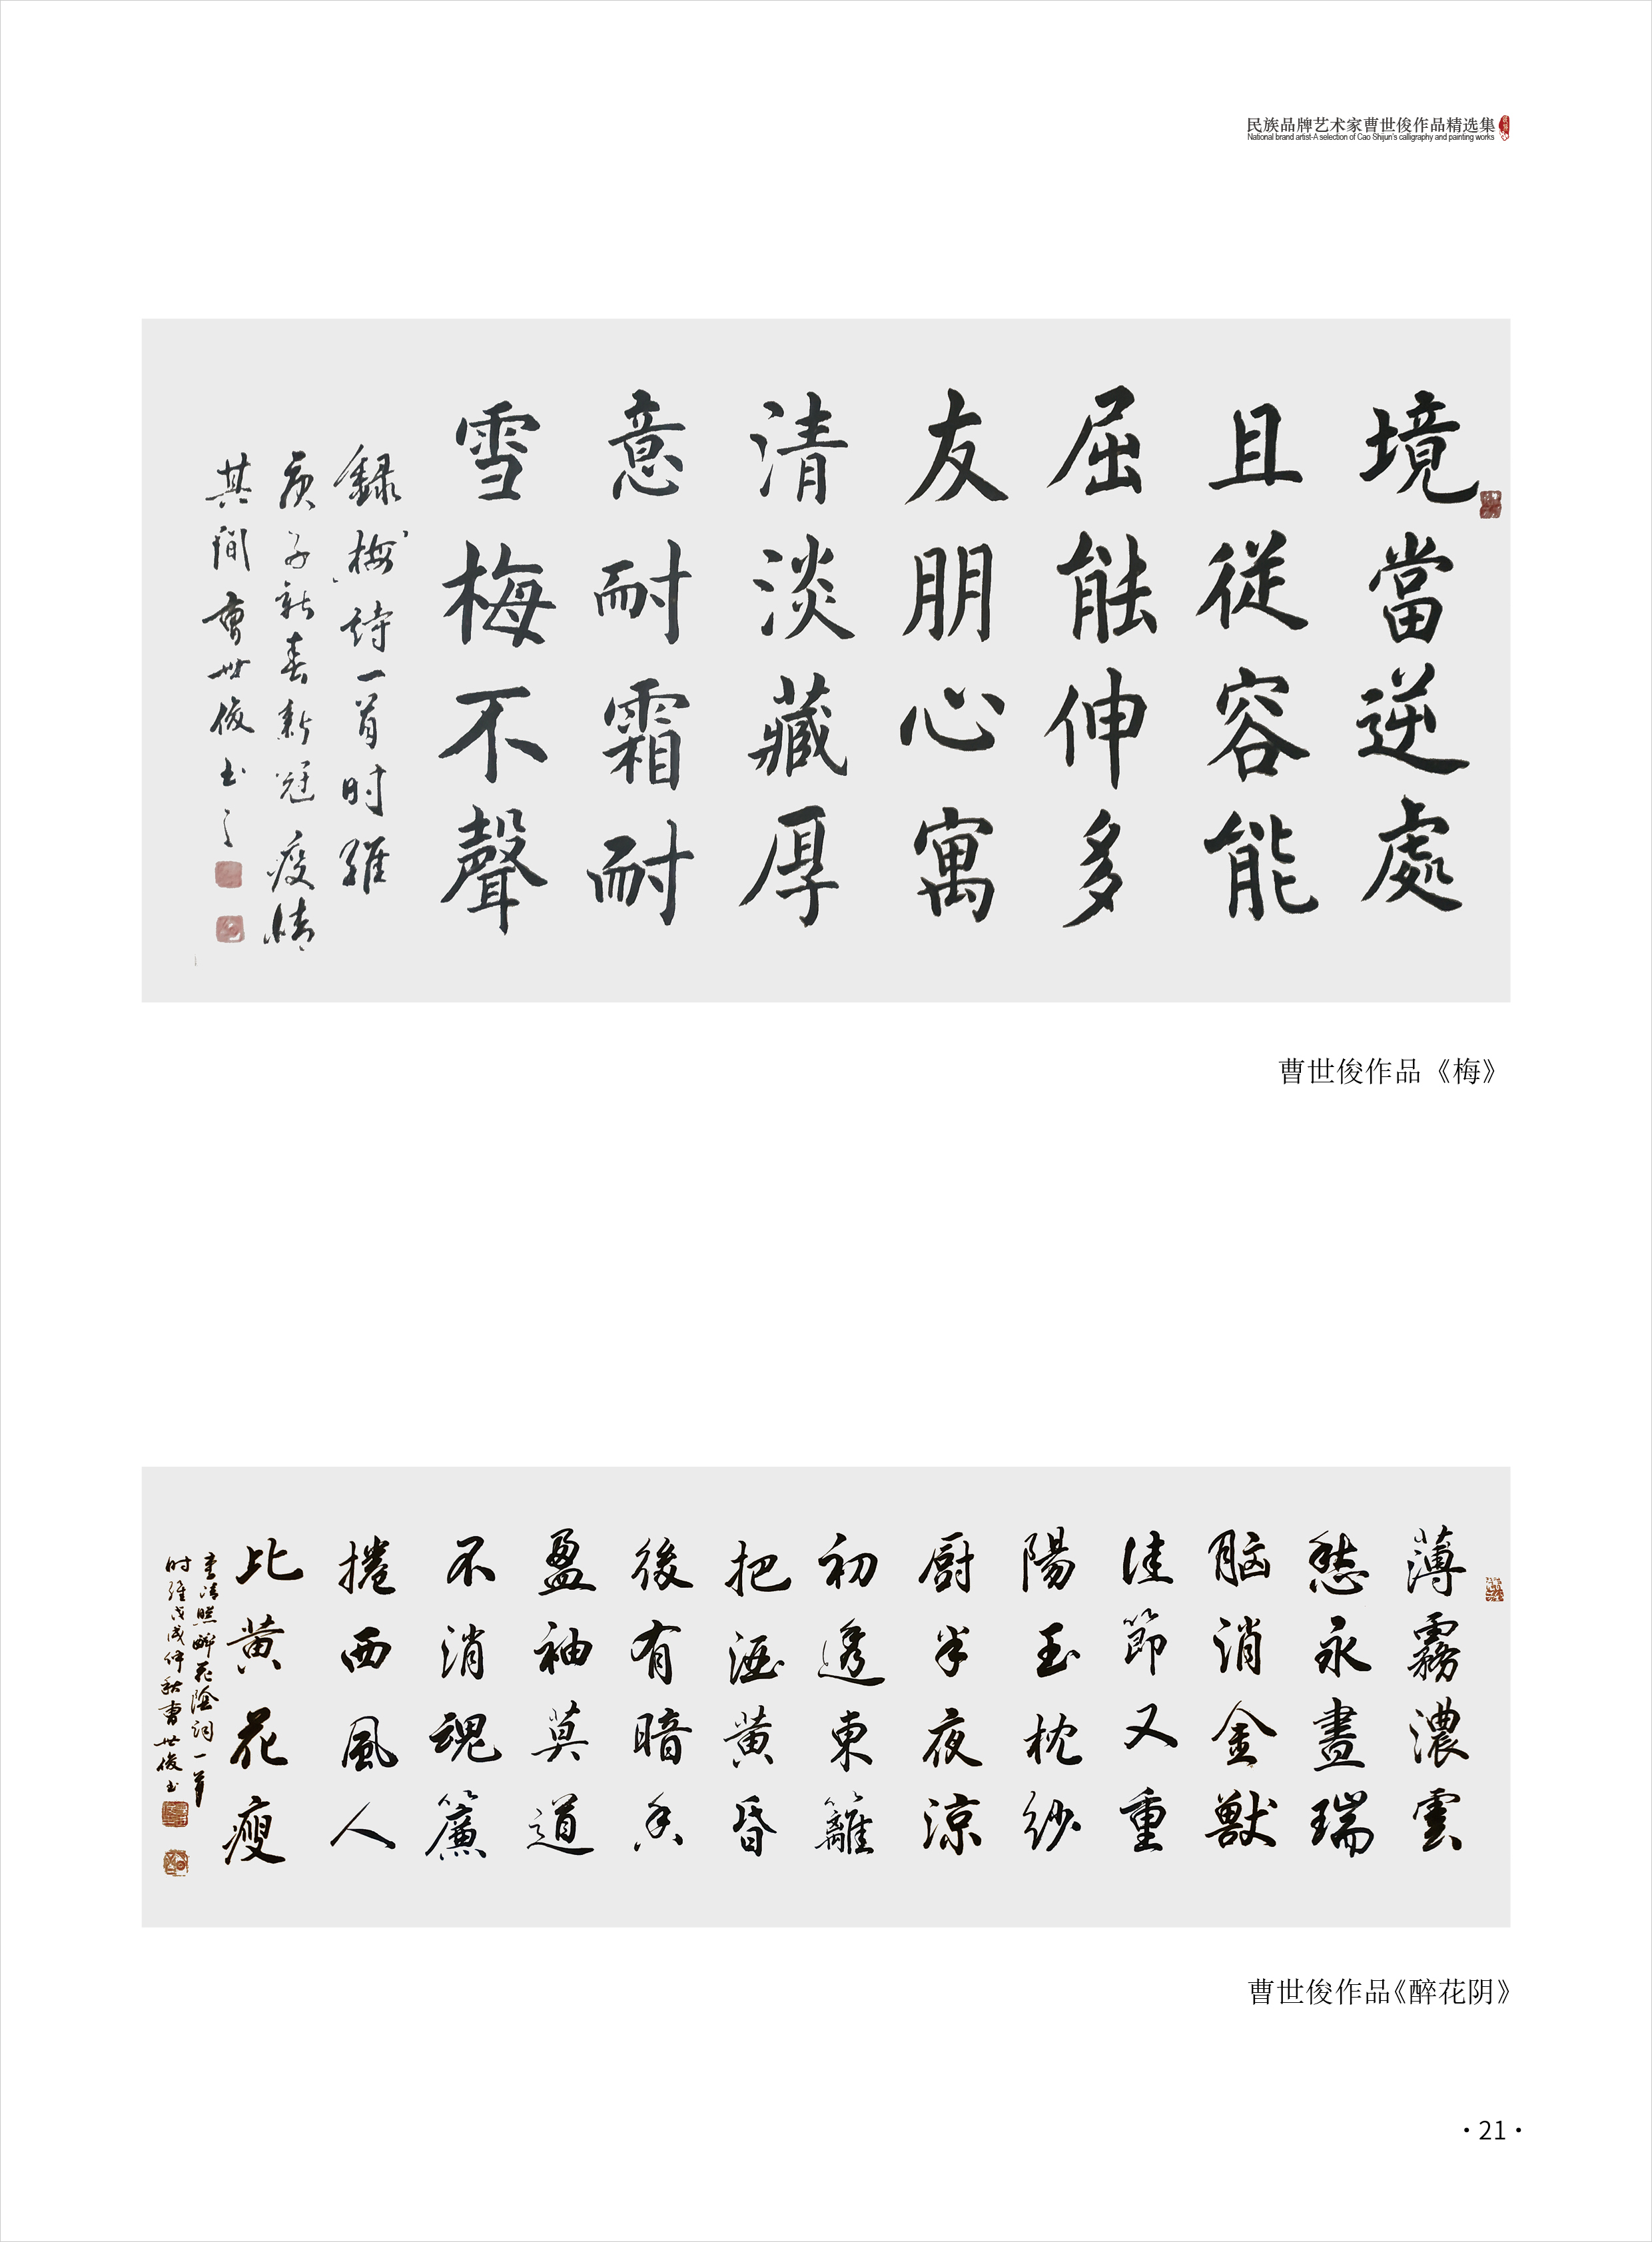 民族品牌艺术家曹世俊作品精选集
National brand artist-A selection of Cao Shijun's calligraphy and painting works
境當逆處
且從容能
屈能伸多
友朋心寓
清淡藏厚
意耐霜耐
雪梅不聲
録梅詩一首时維
庚子新春新冠疫情
其间曹世俊书之
曹世俊作品《梅》
薄霧濃雲
愁永晝瑞
脑消金獸
佳節又重
陽玉枕紗
厨半夜涼
初透東籬
把酒黄昏
後有暗香
盈袖莫道
不消魂簾
捲西風人
比黄花瘦
李清照醉花陰詞一首
时維戊戌仲秋曹世俊书
曹世俊作品《醉花阴》
·21·